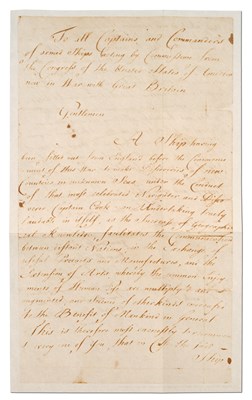 To all Captains and Commanders
of armed Ships acting by Commission from
the Congress of the United States of America
now in War with Great Britain
Gentlemen
A Ship having
been fitted out from England before the Commence
ment of this War to make Discoveries of new
Countries in unknown Seas, under the Conduct
of that most celebrated Navigator and Discov
erer Captain Cook; an Undertaking truly
laudable in itself, as the Increase of Geographi
cal Knowledge facilitates the Communication
between distant Nations, in the Exchange of
useful Products and Manufactures, and the
Extension of Arts whereby the common Enjoy
ments of Human Life are multiply'd and
augmented, and Science of other kinds increased
to the Benefit of Mankind in general
This is therefore most earnestly to recommend
to every one of you that in Case the said
Ship